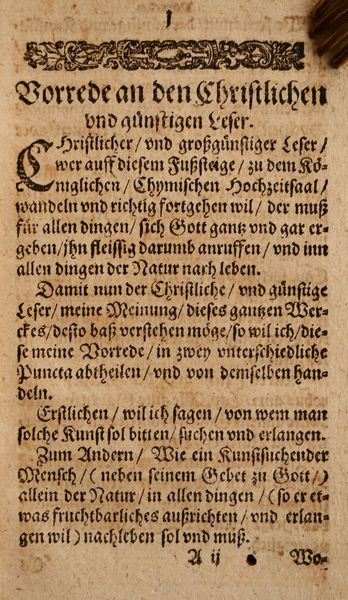 1
Vorrede an den Christlichen
vnd günstigen Leser.
CHristlicher / vnd großgünstiger Leser /
wer auff diesem Fußsteige / zu dem Kö-
niglichen / Chymischen Hochzeitsaal /
wandeln vnd richtig fortgehen wil / der muß
für allen dingen / sich Gott gantz vnd gar er-
geben / jhn fleissig darumb anruffen / vnd inn
allen dingen der Natur nach leben.
Damit nun der Christliche / vnd günstige
Leser / meine Meinung / dieses gantzen Wer-
ckes / desto baß verstehen möge / so wil ich / die-
se meine Vorrede / in zwey vnterschiedliche
Puncta abtheilen / vnd von demselben han-
deln.
Erstlichen / wil ich sagen / von wem man
solche Kunst sol bitten / suchen vnd erlangen.
Zum Andern / Wie ein Kunstsuchender
Mensch / ( neben seinem Gebet zu Gott / )
allein der Natur / in allen dingen / ( so er et-
was fruchtbarliches außrichten / vnd erlan-
gen wil ) nachleben sol vnd muß.
A ij Wo-